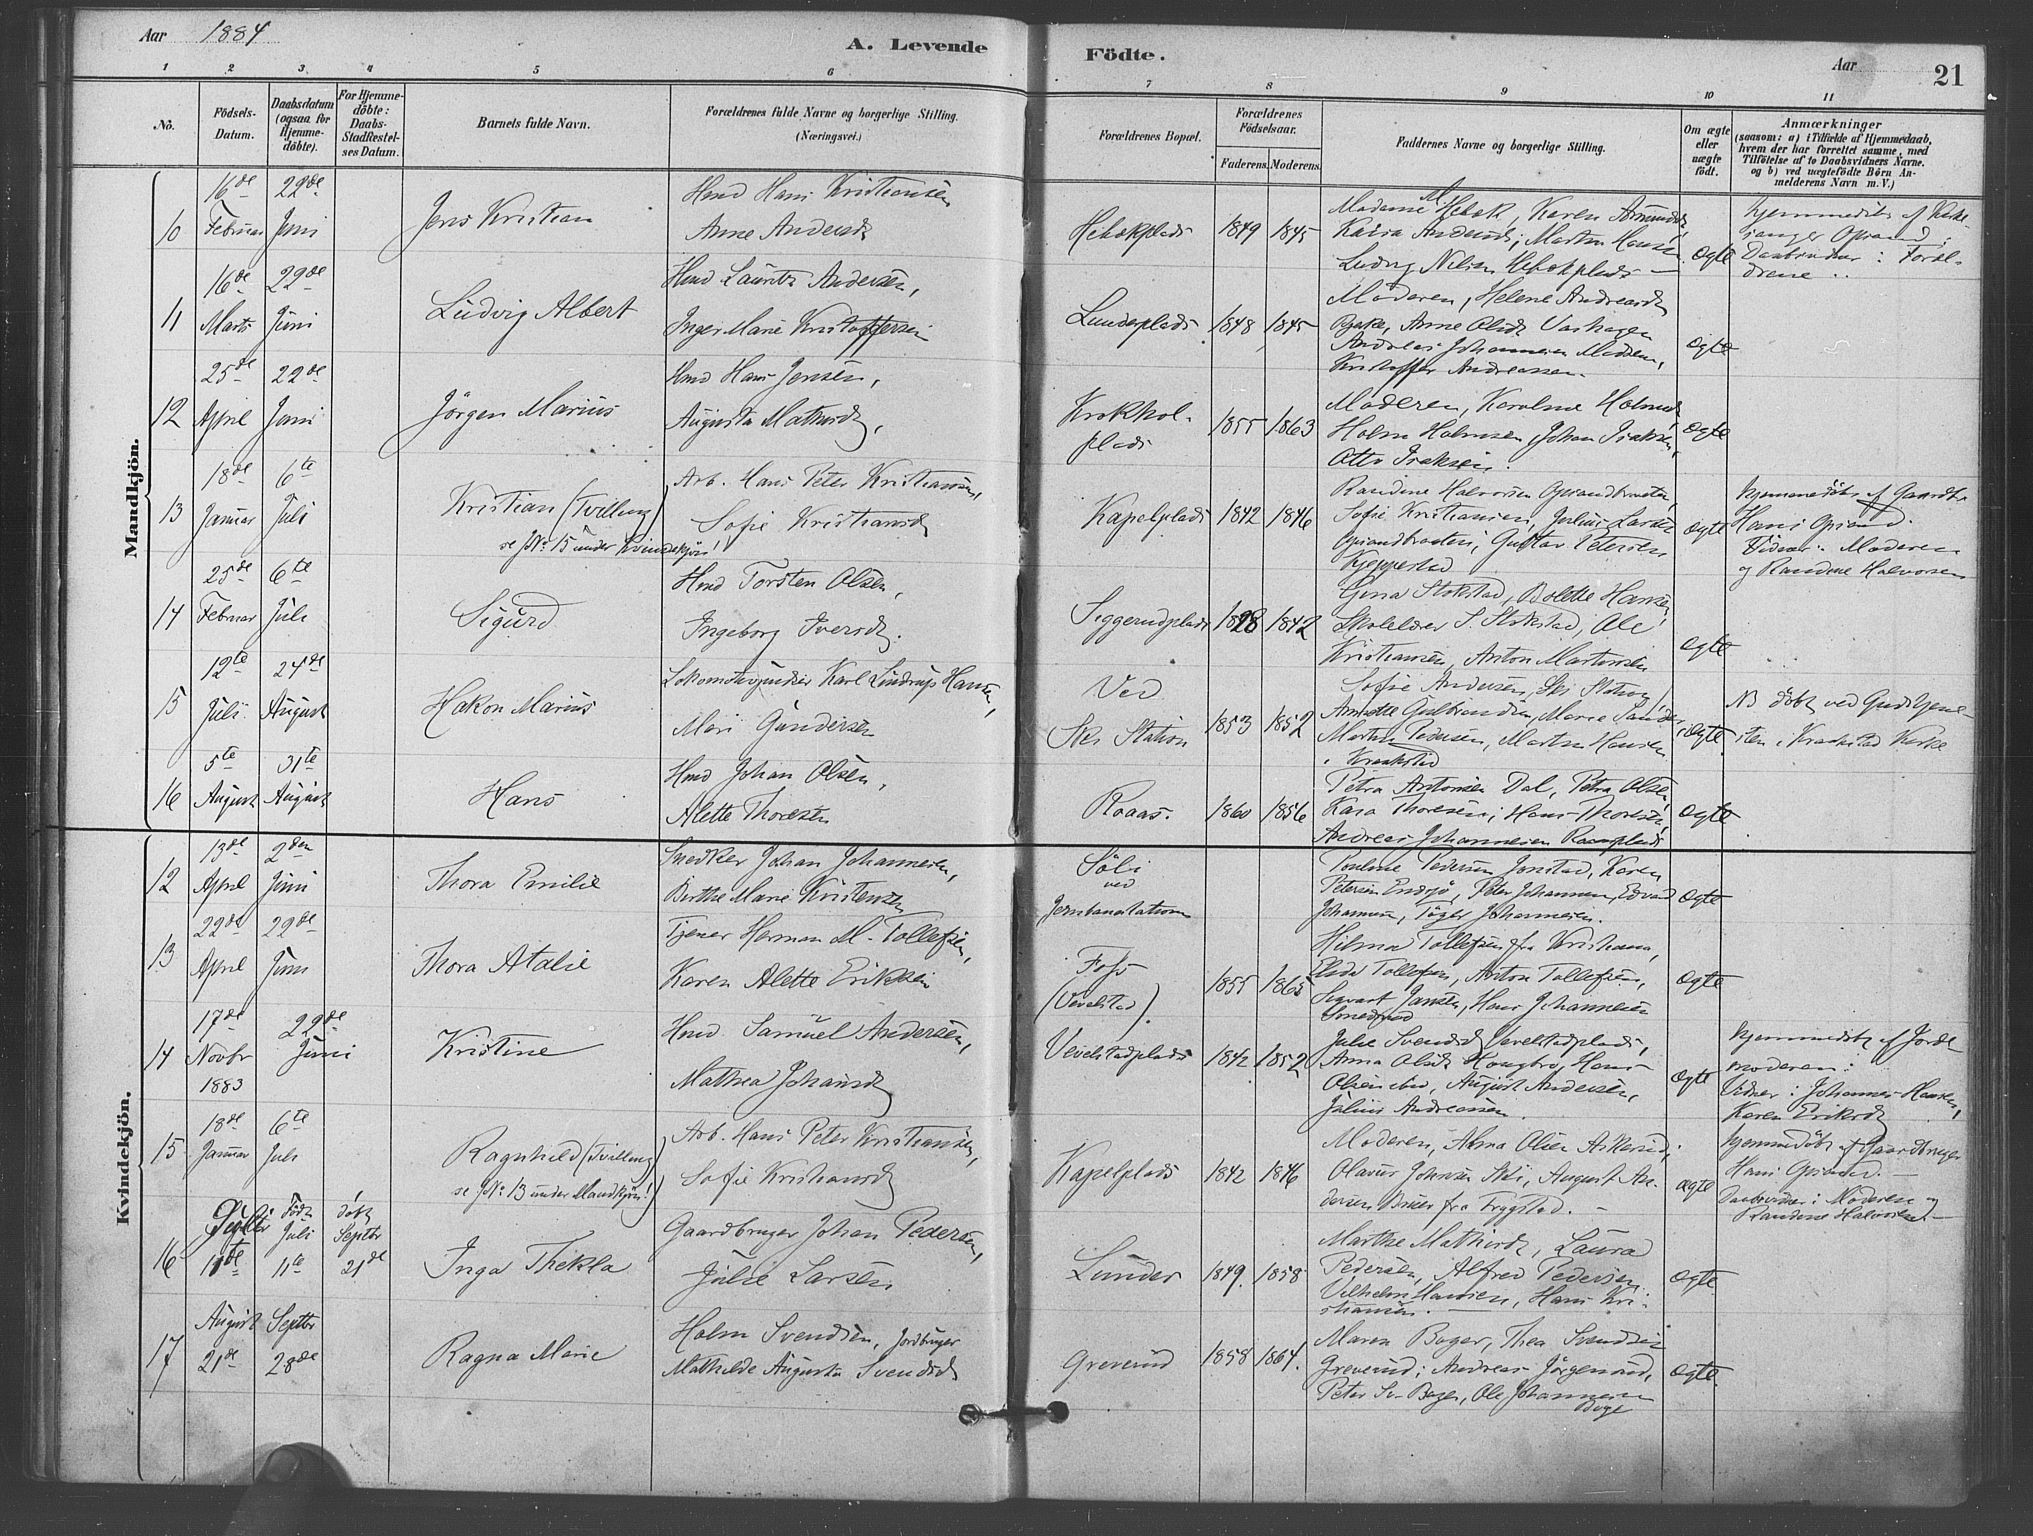 Aar 1884
A. Levende
Födte.
Aar
21
1 2 3 4 5 6 7 8 9 10 11
No.
Födsels-
Datum.
Daabsdatum
(ogsaa for
Hjemme-
döbte).
For Hjemme-
döbte:
Daabs-
Stadfæstel-
ses Datum.
Barnets fulde Navn.
Forældrenes fulde Navne og borgerlige Stilling.
(Næringsvei.)
Forældrenes Bopæl.
Forældrenes
Födselsaar.
Faderens. Moderens.
Faddernes Navne og borgerlige Stilling.
Om ægte
eller
uægte
födt.
Anmærkninger
(saasom: a) i Tilfælde af Hjemmedaab,
hvem der har forrettet samme, med
Tilföielse af to Daabsvidners Navne.
og b) ved uægtefödte Börn An-
melderens Navn m. V.)
Mandkjön.
10
16de
Februar
22de
Juni
Jens Kristian
Hmd Hans Kristiansen
Anne Andersd
Hebekplads
1849 1845
Madame M Hebek, Karen
Kaisa Andersd; Martin Hansen
Ludvig Nilsen Hebekplads
Ægte
hjemmedöbt af Kirke-
sanger Opsand;
Daabsvidner: Foræl-
drene
11
16de
Marts
22de
Juni
Ludvig Albert
Hmd Laurits Andersen,
Inger Marie Kristoffersen
Lunderplads
1848 1845
Moderen, Helene Andreasd
Anne Olsd
Andreas Johannesen
Kristoffer Andreassen.
Ægte
12
25de
April
22de
Juni
Jörgen Marius
Hmd Hans Jensen,
Augusta Mathisd,
Krokhol-
plads
1855 1863
Moderen, Karoline Holmsd,
Holm Holmsen, Johan Isaksen,
Otto Isaksen.
Ægte
13
18de
Januar
6te
Juli
Kristian (Tvilling)
se No. 15 under Kvindekjön!
Arb. Hans Peter Kristiansen,
Sofie Kristiansd
Kapelplads
1842 1846
Randine Halvorsen Opsandbraaten,
Sofie Kristiansen, Julius Larsen
Opsandbraaten, Gustav Petersen
Kjeppestad
Ægte
hjemmedöbt af Gaardbr
Hans Opsand.
Vidner: Moderen
og Randine Halvorsen
14
25de
Februar
6te
Juli
Sigurd
Hmd Torsten Olsen,
Ingeborg Iversd.
Siggerudplads
1828 1842
Gina Stokstad, Bolette Hansen,
Skolelærer S. Stokstad, Ole
Kristiansen, Anton Martinsen
Ægte
15
12te
Juli
24de
August
Hakon Marius
Karl Lindrup Hansen,
Mari Gundersen
Ved
Ski Station
1853 1852
Sofie Andersen, Ski Station,
Annette Gulbrandsen, Marie
Martin Pedersen, Martin Hansen
i Kraakstad
Ægte
NB döbt ved Gudstjene-
sten i Kraakstad Kirke
16
5te
August
31te
August
Hans
Hmd Johan Olsen,
Alette Thoresen
Raaas.
1860 1856
Petra Antonsen Dal, Petra Olsen,
Kaia Thoresen; Hans Thoresen,
Andreas Johannesen Raaasplads
Ægte
Kvindekjön.
12
13de
April
2den
Juni
Thora Emilie
Snedker Johan Johannesen,
Birthe Marie Kristensen
ved
Jernbanstation
Pauline Pedersen Jonstad, Karen
Petersen Endsjö, Peter Johannesen, Edvard
Johannesen, Johannesen.
Ægte
13
22de
April
22de
Juni
Thora Atalie
Tjener Herman M. Tollefsen,
Karen Alette Eriksen
Fos
(Vevelstad).
1855 1865
Hilma Tollefsen fra Kristiania,
Elida Tollefsen, Anton Tollefsen,
Sigvart Jansen, Hans Johannesen
Ægte
14
17de
Novbr
1883
22de
Juni
Kristine
Hmd. Samuel Andersen,
Mathea Johansd
Vevelstadplads
1842 1852
Julie Svendsd Vevelstadplads,
Anna Olsd Haugbro, Hans
Olsen, August Andersen,
Julius Andreassen.
Ægte
hjemmedöbt af Jorde-
moderen:
Vidner: Johannes Hansen,
Karen Eriksd
15
18de
Januar
6te
Juli
Ragnhild (Tvilling)
se No. 13 under Mandkjön!
Arb. Hans Peter Kristiansen,
Sofie Kristiansd
Kapelplads
1842 1846
Moderen, Alma Olsen Askersrud,
Olavus Johnsen Ski, August An-
dersen fra Frygstad.
ægte
hjemmedöbt af Gaardbruger
Hans Opsand.
Daabsvidner: Moderen og
Randine Halvorsen
16
11te
Född
Juli
11te
döbt
Septbr
21de
Inga Thekla
Gaardbruger Johan Pedersen,
Julie Larsen
Lunder
1849. 1858
Marthe Mathisd, Laura
Pedersen, Alfred Pedersen,
Vilhelm Hansen, Hans Kri-
stiansen.
Ægte
17
August
21de
Septbr
28de
Ragna Marie
Holm Svendsen, Jordbruger
Mathilde Augusta Svendsd
Greverud
1858 1864.
Maren Bøger, Thea Svendsen
Greverud; Andreas Jörgensen,
Peter Sv. Bøger, Ole Johannesen
Ægte.